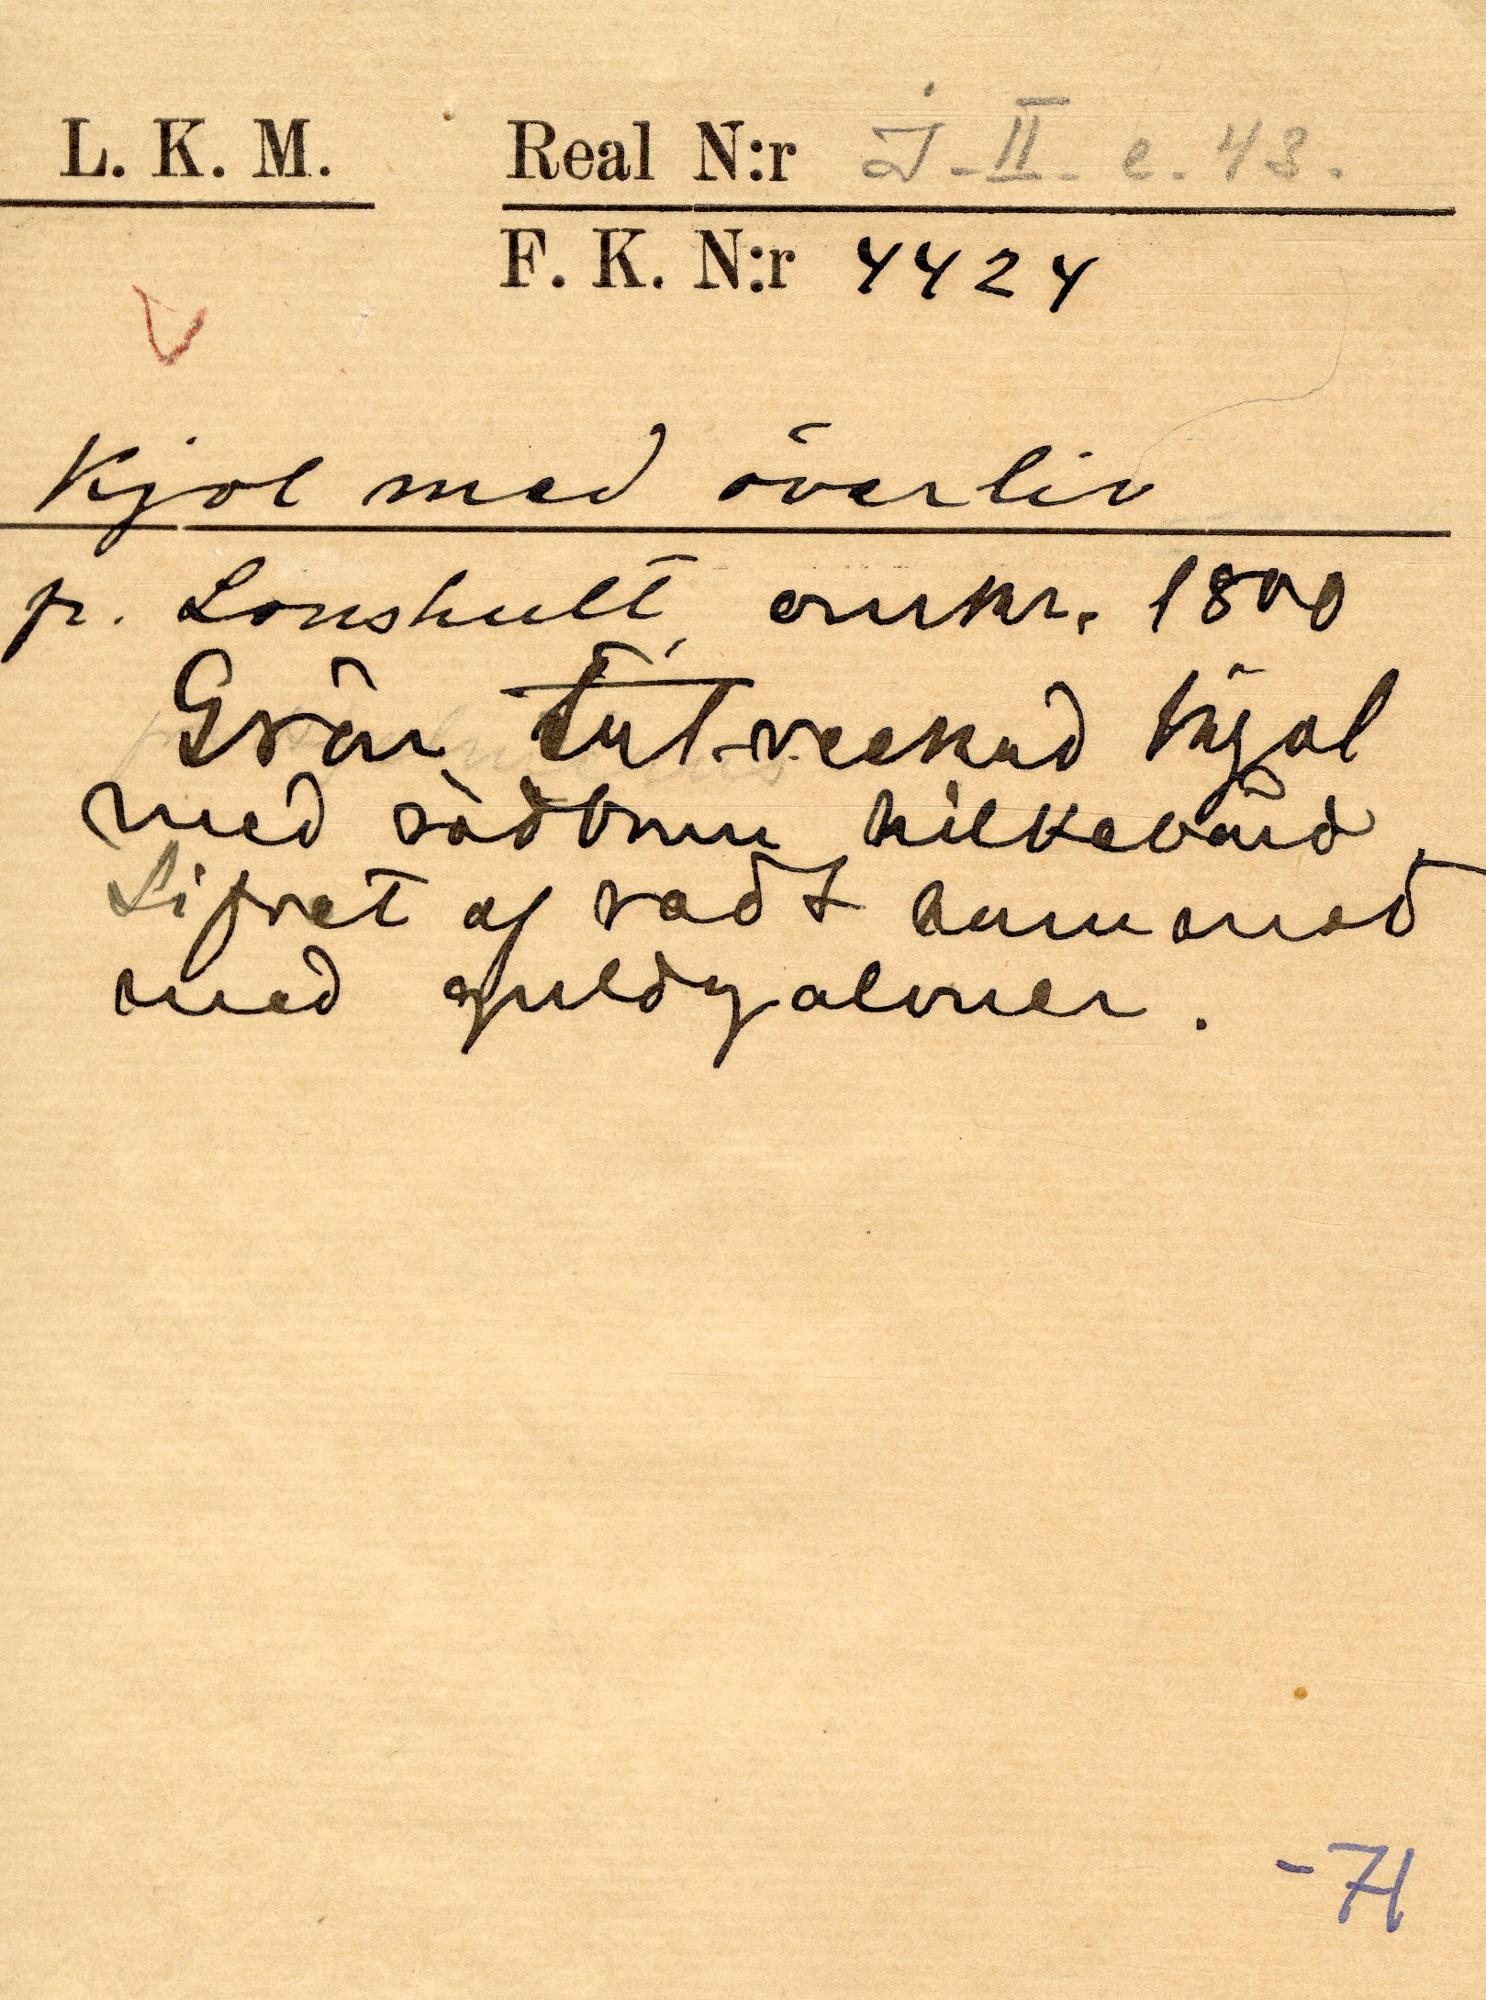 L. K. M. Real N:r J. II. e. 43.
F. K. N:r 4424
Kjol med överliv
fr. Lonshult, omkr. 1800
Grön tätveckad kjol
med rödbrun silkebård.
Lifvet af rödt
med guldgaloner.
-71